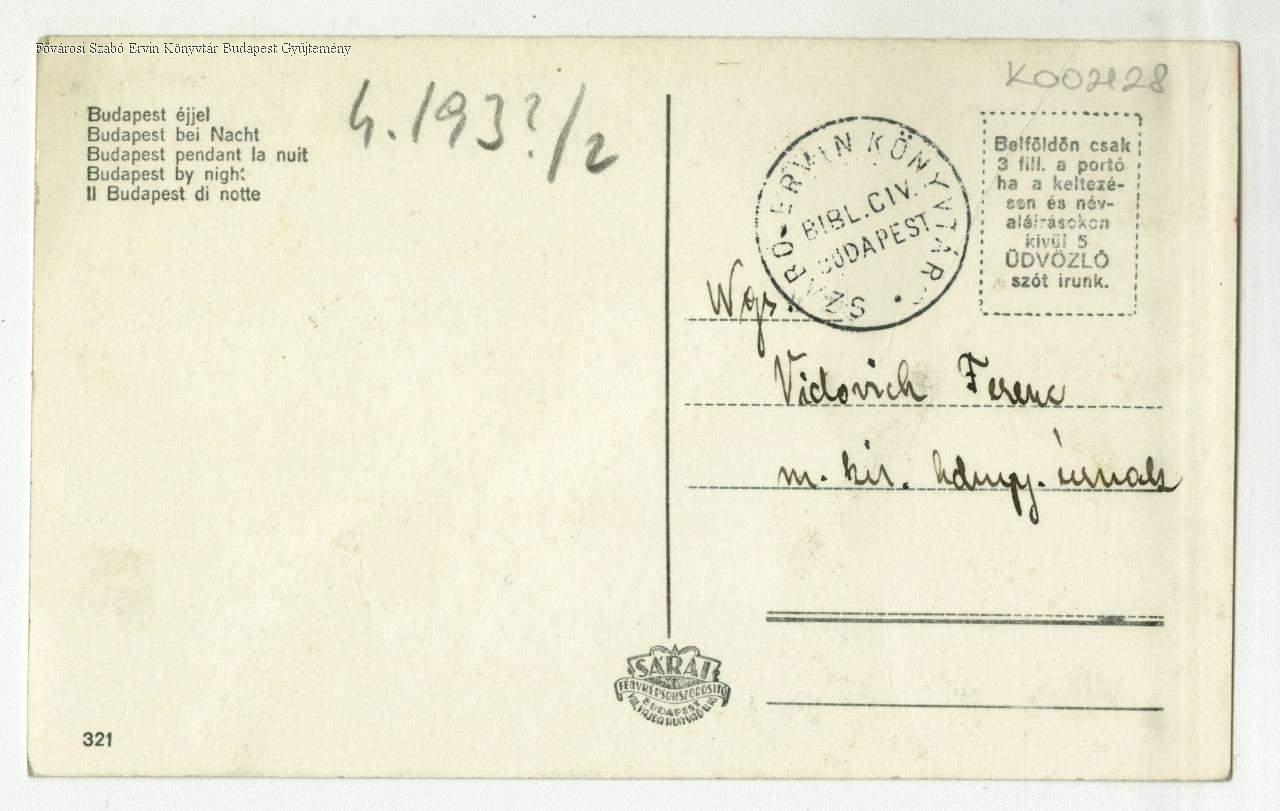 Fővárosi Szabó Ervin Könyvtár Budapest Gyűjtemény
K002128
Budapest éjjel
Budapest bei Nacht
Budapest pendant la nuit
Budapest by night
Il Budapest di notte
4.193?/2
SZABÓ-ERVIN KÖNYVTÁR
BIBL.CIV.
BUDAPEST
Belföldön csak
3 fill. a portó
ha a keltezé-
sen és név-
aláirásokon
kivül 5
ÜDVÖZLŐ
szót irunk.
Vidovich Ferenc
m. kir.
SÁRAI
FÉNYKÉPSOKSZOROSITÓ
BUDAPEST
321